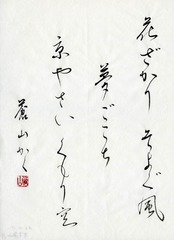 花ざかり そよぐ風
夢ごこち
京やさい くもり空
蒼山かく